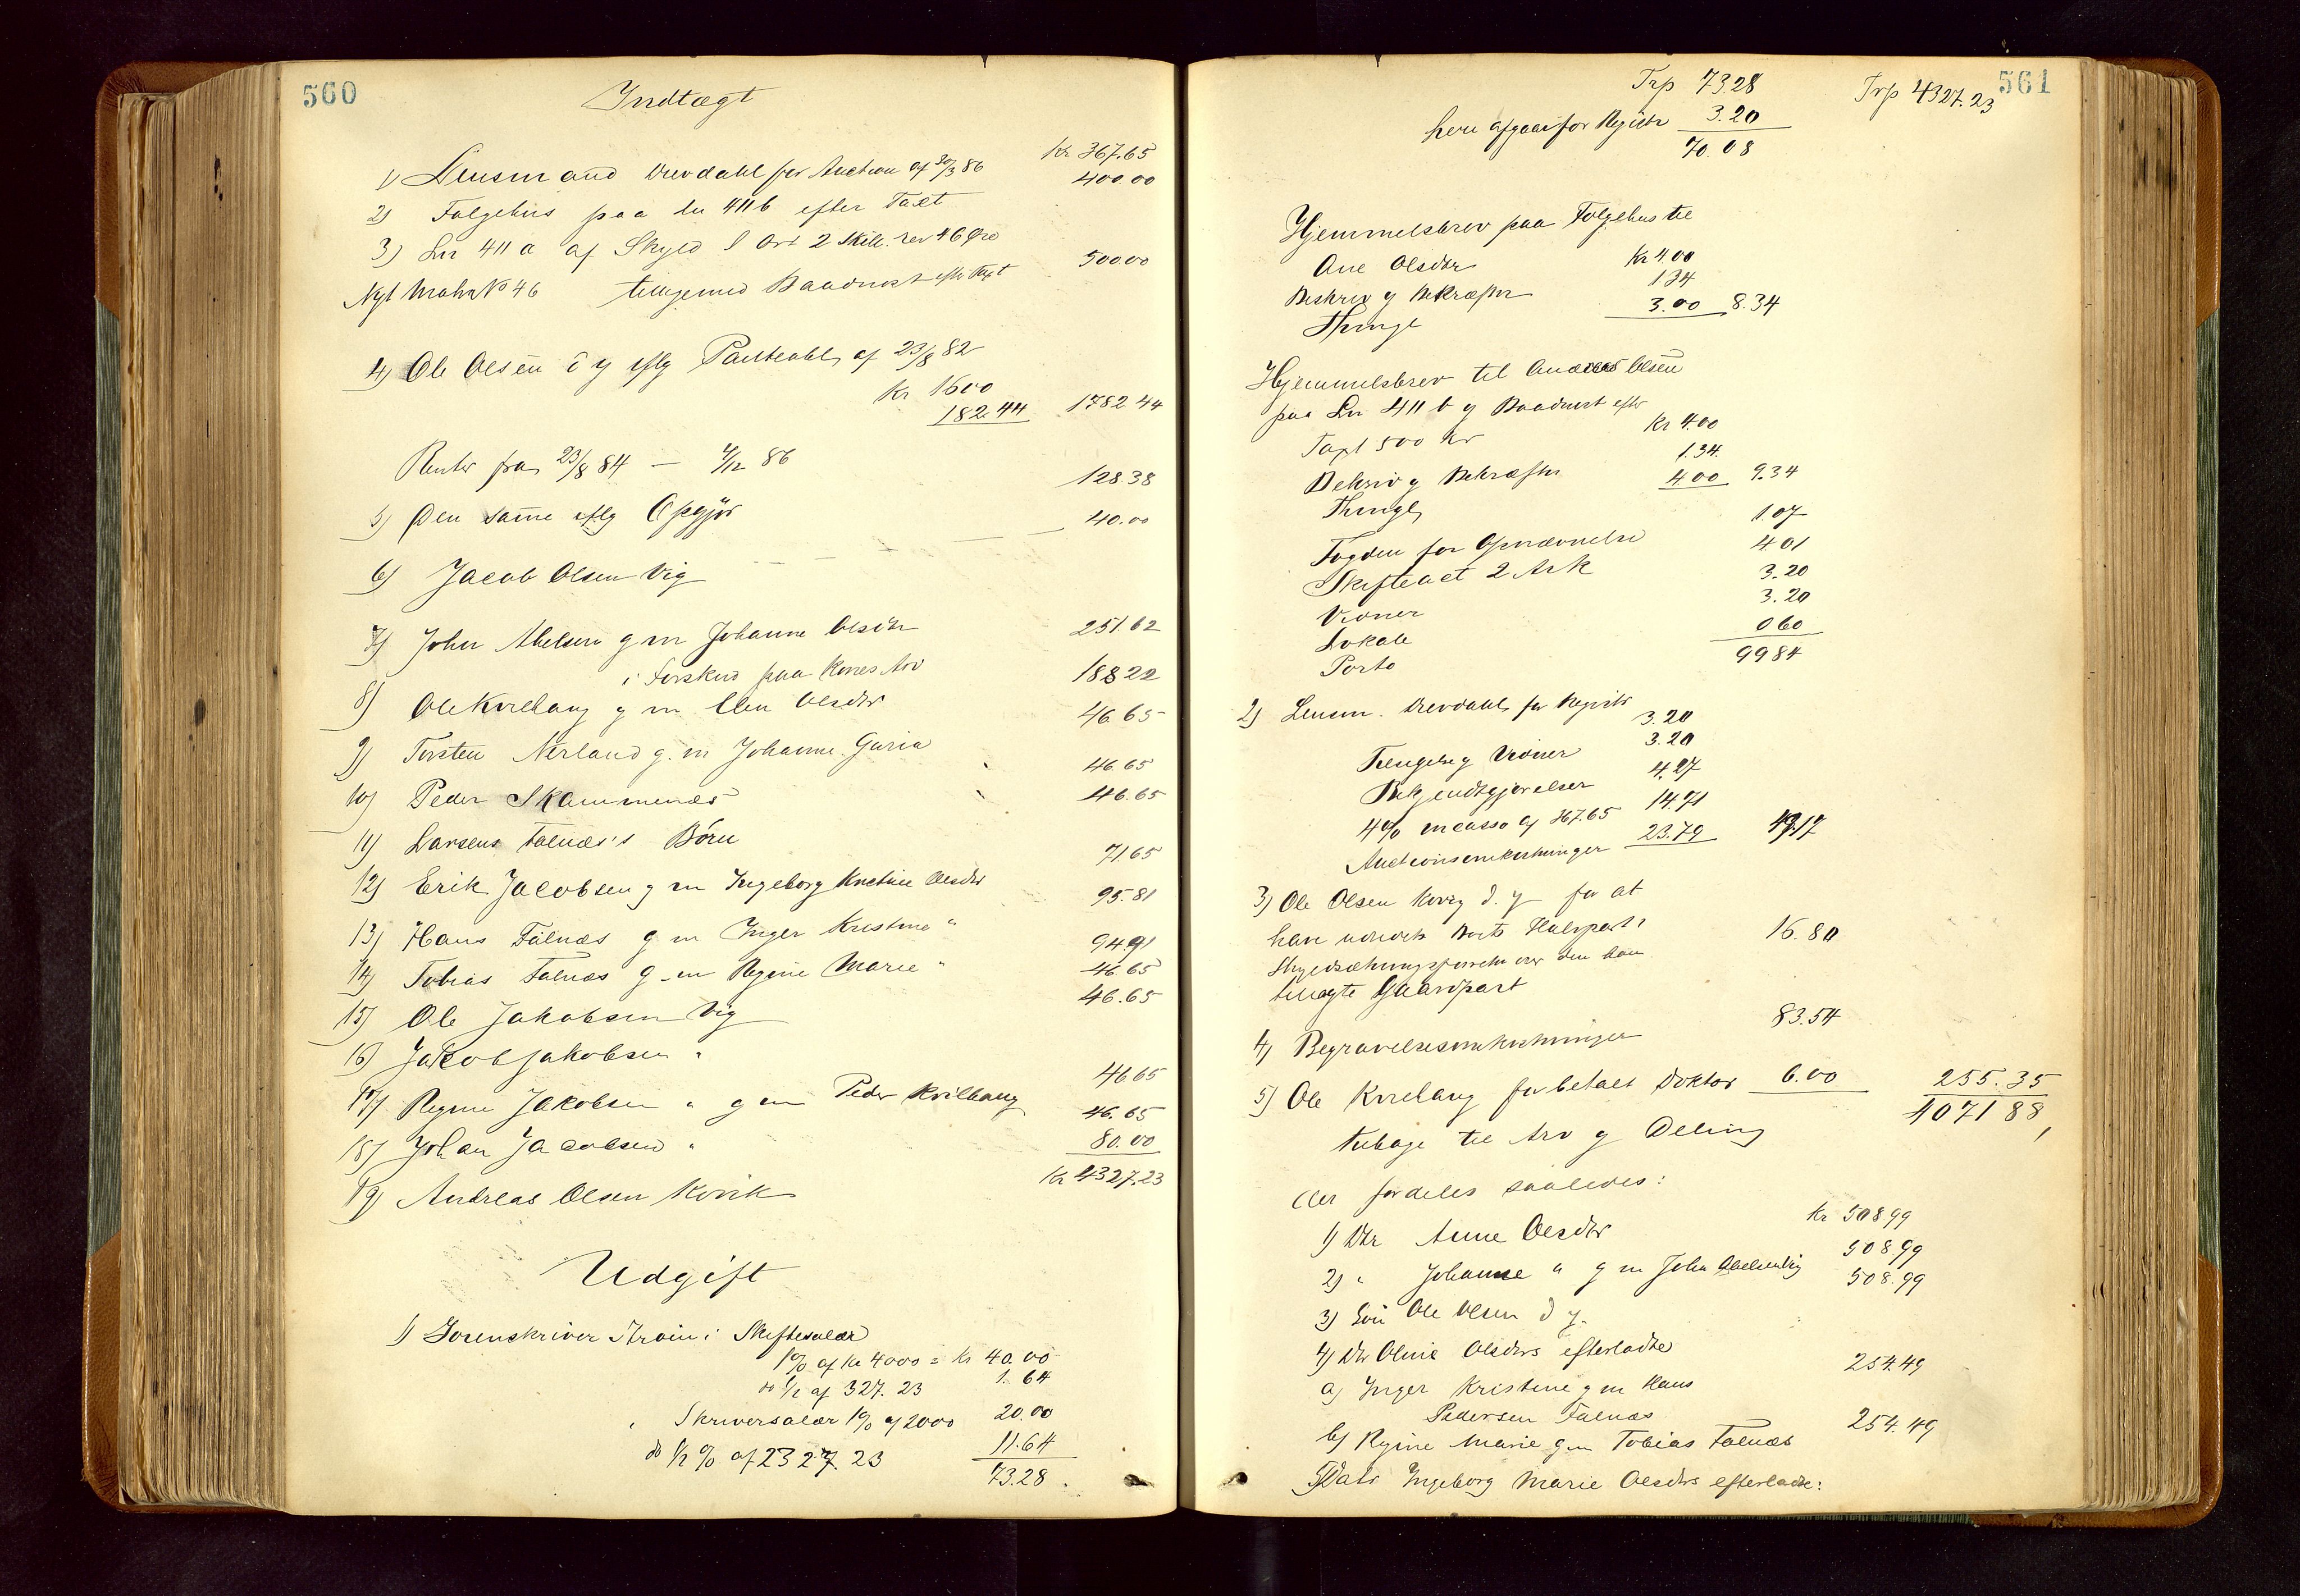 560
Indtægt
1) Lensmand Drevdahl for Auction af 30/3 86 Kr 367.65
2) Følgehus paa Ln 411 b efter Taxt 400.00
3) Lnr 411 a af Skyld 1 Ort 2 Skill. rev 46 Øre
Nyt Matr No 46 tilligemed Baadnøst efter Taxt 500.00
4) Ole Olsen d y iflg Panteobl. af 23/8 82
Kr 1600
182.44 1782 44
Renter fra 23/8 84 — 4/12 86 128.38
5) Den samme iflg Opgjør 40.00
6) Jacob Olsen Vig
7) John Abelsen g m Johanne Olsdtr 251.62
i Forskud paa Kones Arv
8) Ole Kvilhaug g m Elen Olsdtr 188 22
9) Torsten Nerland g. m Johanne Guria 46.65
10) Peder Skammenæs 46.65
11) Larsens Falnæs's Börn 46.65
12) Erik Jacobsen g m Ingeborg Kristine Olsdtr 71.65
13) Hans Falnæs g m Inger Kristine " 95.81
14) Tobias Falnæs g m Regine Marie " 94.91
15) Ole Jakobsen Vig 46.65
16) Jakob Jakobsen " 46.65
17) Regine Jakobsen " g m Peder Kvilhaug 46.65
18) Johan Jacobsen " 46.65
19) Andreas Olsen Kvvik 80.00
Kr 4327.23
Udgift
1) Sorenskriver Strøm i Skiftesalær
1% af Kr 4000 = Kr 40.00
do ½ af 327.23 1.64
" Skriversalær 1% af 2000 20.00
do ½ % af 2327.23 11.64
73.28.
561
Trp 73.28 Trp 4327.23
herii afgaar for Registr 3.20
70.08
Hjemmelsbrev paa Følgehus til
Ane Olsdtr Kr 4.00
Beskriv g Bekræftn 134
Thingl 3.00 8.34
Hjemmelsbrev til Andreas Olsen
paa Lnr 411 b g Baadnøst efter
Taxt 500 Kr Kr 4.00
Beskriv g Bekræftn 1.34.
Thingl. 4.00 9.34
Fogden for Opnævnelse 1.07
Skifteact 2 Ark 4.01
Vidner 3.20
Lokale 3.20
Porto 0 60
99 84
2) Lensm. Drevdahl for Registr 3.20
Tilsigelse g Vidner 3.20
Bekjendtgjørelser 4.27
4% incasso af 367.65 14.71
Auctionsomkostninger 23.79 49.17
3) Ole Olsen Kvvig d. y for at
have Boets Halvpart i 16.80
Skyldsætningsforretn over den ham
tillagte Gaardpart
4) Begravelsesomkostninger 83.54
5) Ole Kvilhaug for betalt Doktor 6.00 255.35
tilbage til Arv g Deling 4071 88,
der fordeles saaledes:
1) Dtr Anne Olsdtr Kr 508 99
2) " Johanne " g m John Abelsen Vig 508.99
3) Søn Ole Olsen d y. 508.99
4) Dtr Oline Olsdtrs efterladte
a) Inger Kristine g m Hans
Pedersen Falnæs 254.49
b) Regine Marie g m Tobias Falnæs 254.49
5) Datr Ingeborg Marie Olsdtrs efterladte: